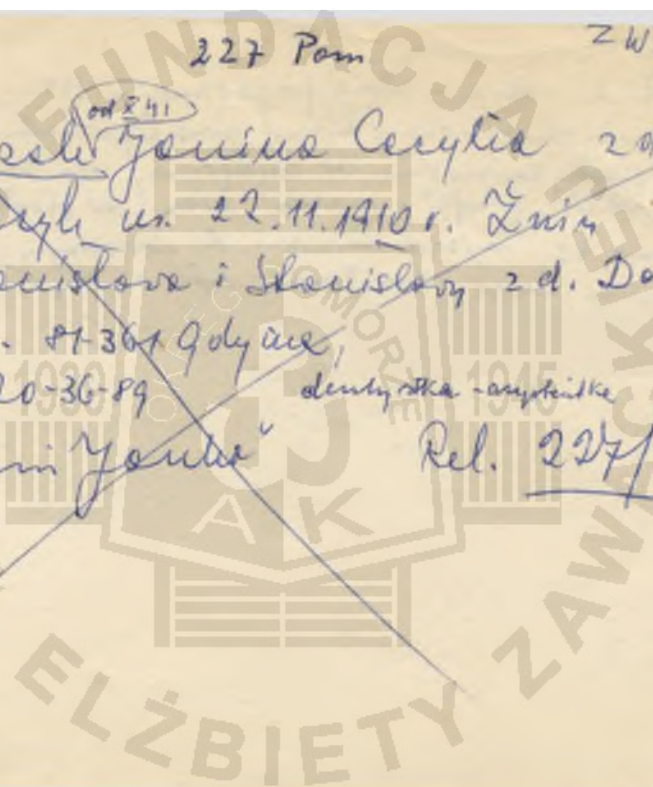 227 Pom
ZW
od X 41
Janina Cecylia
ur. 22.11.1910 r. Żnin
i Stanisławy z d. Do
81-361 Gdynia,
20-36-89
dentystka - asystentka
"Janka"
Rel. 227/
FUNDACJA
ELŻBIETY ZAWACKIEJ
OKRĘG POMORZE
1939
1945
AK